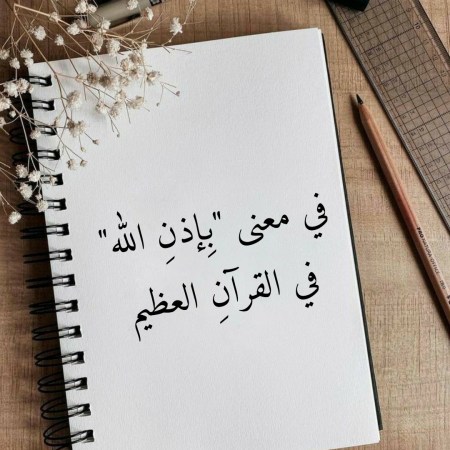 في معنى "بِإذنِ الله"
في القرآنِ العظيم